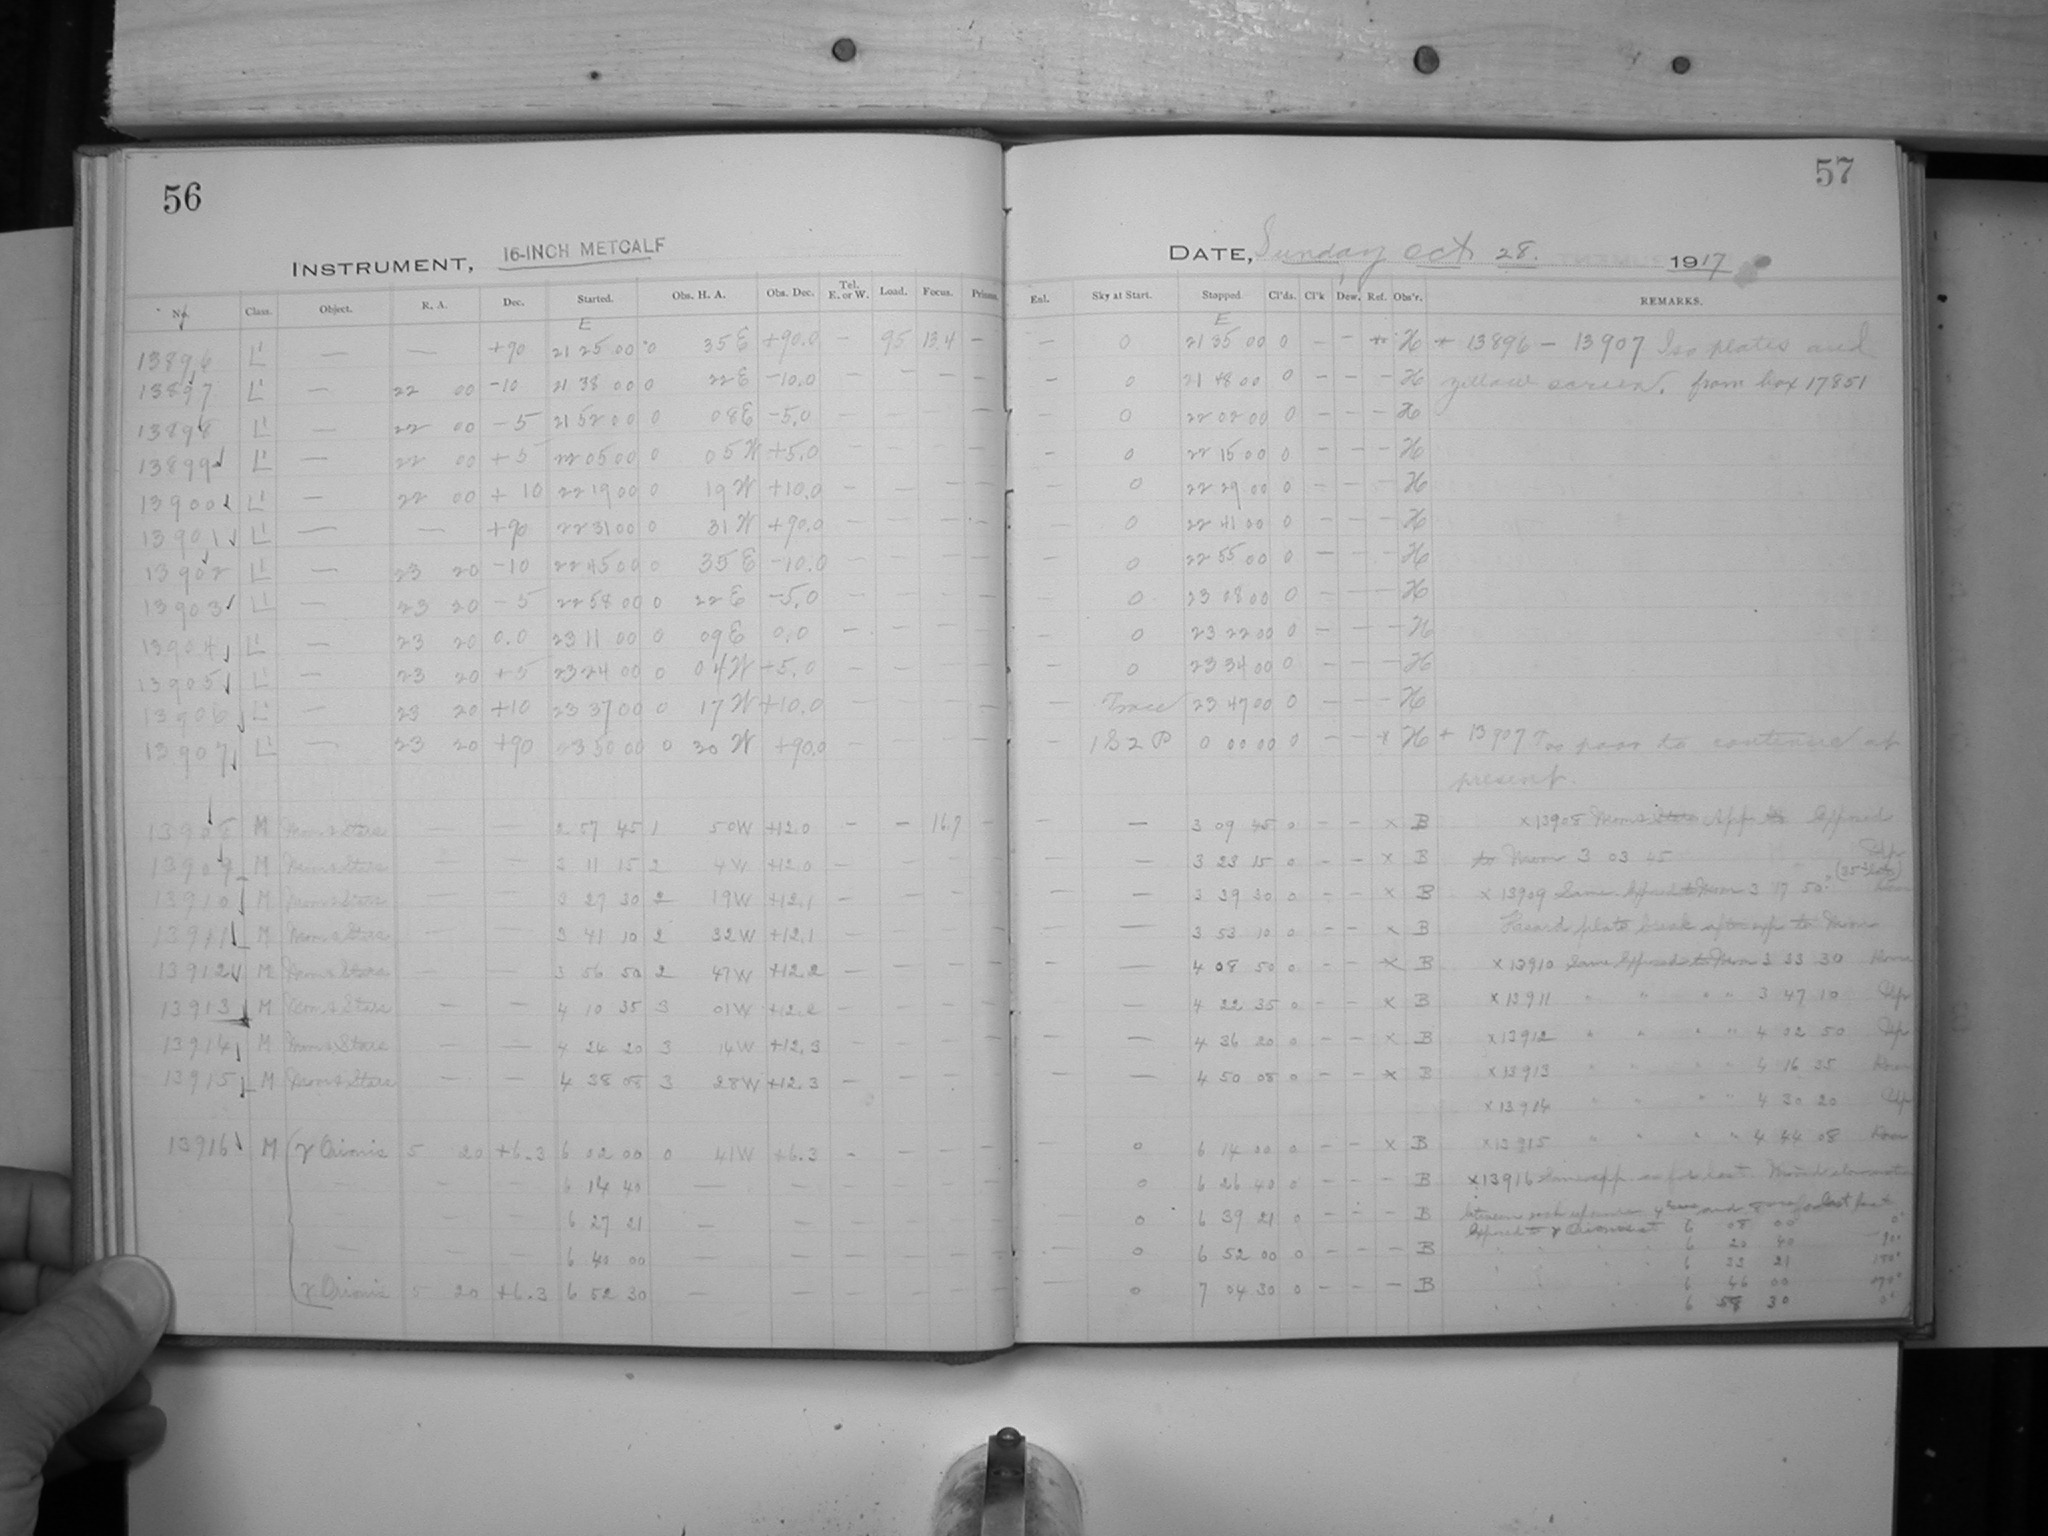 56
INSTRUMENT, 16-INCH METCALF
No. Class. Object. R. A. Dec. Started. Obs. H. A. Obs. Dec. Tel. E. or W. Load. Focus. Prisms.
E
13896 L' — — +90 21 25 00 0 35 E +90.0 — 95 13.4 —
13897 L' — 22 00 -10 21 38 00 0 22 E -10.0 — — — —
13898 L' — 22 00 -5 21 52 00 0 08 E -5.0 — — — —
13899 L' — 22 00 +5 22 05 00 0 05 W +5.0 — — — —
13900 L' — 22 00 +10 22 19 00 0 19 W +10.0 — — — —
13901 L' — — +90 22 31 00 0 31 W +90.0 — — — —
13902 L' — 23 20 -10 22 45 00 0 35 E -10.0 — — — —
13903 L' — 23 20 -5 22 58 00 0 22 E -5.0 — — — —
13904 L' — 23 20 0.0 23 11 00 0 09 E 0.0 — — — —
13905 L' — 23 20 +5 23 24 00 0 04 W +5.0 — — — —
13906 L' — 23 20 +10 23 37 00 0 17 W +10.0 — — — —
13907 L' — 23 20 +90 23 50 00 0 30 W +90.0 — — — —
13908 M Moon & Stars — — 2 57 45 1 50 W +12.0 — — 16.7 —
13909 M Moon & Stars — — 3 11 15 2 4 W +12.0 — — — —
13910 M Moon & Stars — — 3 27 30 2 19 W +12.1 — — — —
13911 M Moon & Stars — — 3 41 10 2 32 W +12.1 — — — —
13912 M Moon & Stars — — 3 56 50 2 47 W +12.2 — — — —
13913 M Moon & Stars — — 4 10 35 3 01 W +12.2 — — — —
13914 M Moon & Stars — — 4 24 20 3 14 W +12.3 — — — —
13915 M Moon & Stars — — 4 38 08 3 28 W +12.3 — — — —
13916 M γ Orionis 5 20 +6.3 6 02 00 0 41 W +6.3 — — — —
— — — 6 14 40 — — — — — —
— — — 6 27 21 — — — — — —
— — — 6 40 00 — — — — — —
γ Orionis 5 20 +6.3 6 52 30 — — — — — —
57
DATE, Sunday Oct 28. 1917
Enl. Sky at Start. Stopped Cl'ds. Cl'k Dew. Ref. Obs'r. REMARKS.
E
— 0 21 35 00 0 — — * H * 13896 — 13907 Iso plates and
— 0 21 48 00 0 — — — H yellow screen. from box 17851
0 22 02 00 0 — — — H
— 0 22 15 00 0 — — — H
— 0 22 29 00 0 — — — H
— 0 22 41 00 0 — — — H
— 0 22 55 00 0 — — — H
— 0 23 08 00 0 — — — H
— 0 23 22 00 0 — — — H
— 0 23 34 00 0 — — — H
— Trace 23 47 00 0 — — — H
— 1 S 2 P 0 00 00 0 — — * H + 13907 Too poor to continue at
present.
— — 3 09 45 0 — — × B ×13908 Moon & Stars App Exposed
— — 3 23 15 0 — — × B to Moon 3 03 45
— — 3 39 30 0 — — × B × 13909 Same. Exposed to Moon 3 17 50
— — 3 53 10 0 — — × B plate break to Moon
— — 4 08 50 0 — — × B × 13910 Same Exposed to Moon 3 33 30
— — 4 22 35 0 — — × B × 13911 " " " " 3 47 10
— — 4 36 20 0 — — × B × 13912 " " " " 4 02 50
— — 4 50 08 0 — — × B × 13913 " " " " 4 16 35
× 13914 " " " " 4 30 20
— 0 6 14 00 0 — — × B × 13915 " " " " 4 44 08
0 6 26 40 0 — — — B × 13916 Same app as for last.
0 6 39 21 0 — — — B between each and
Exposed to γ Orionis at 6 08 00 0°
— 0 6 52 00 0 — — — B 6 20 40 90°
6 33 21 180°
— 0 7 04 30 0 — — — B 6 46 00 270°
6 58 30 0°